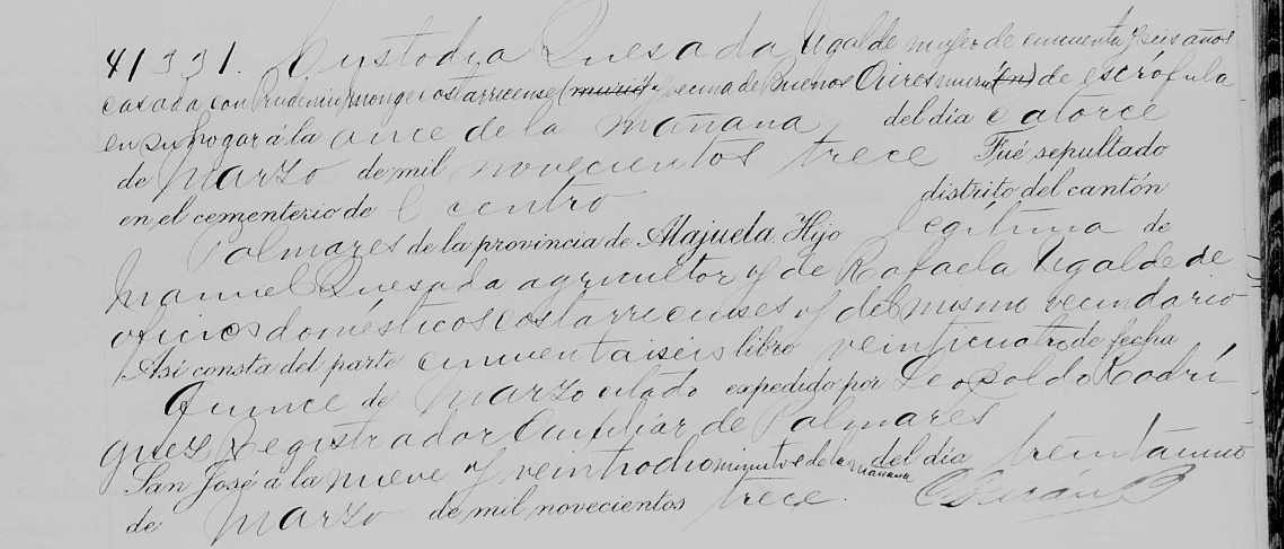 41331. Custodia Quesada Ugalde mujer de cincuenta y seis años
casada con Rudecindo Monge costarricense (murió) y vecina de Buenos Aires murió (n) de escrófula
en su hogar á la once de la mañana, del día catorce
de Marzo de mil novecientos trece Fué sepultado
en el cementerio de l centro distrito del cantón
Palmares de la provincia de Alajuela. Hijo legítima de
Manuel Quesada agricultor y de Rafaela Ugalde de
oficios domésticos costarricenses y del mismo vecindario
Así consta del parte cincuentaiseis libro veinticuatro de fecha
Quince de Marzo citado expedido por Leopoldo Rodrí
guez Registrador Auxiliar de Palmares
San José á la nueve y veintiocho minutos de la mañana del día treintaiuno
de Marzo de mil novecientos trece.